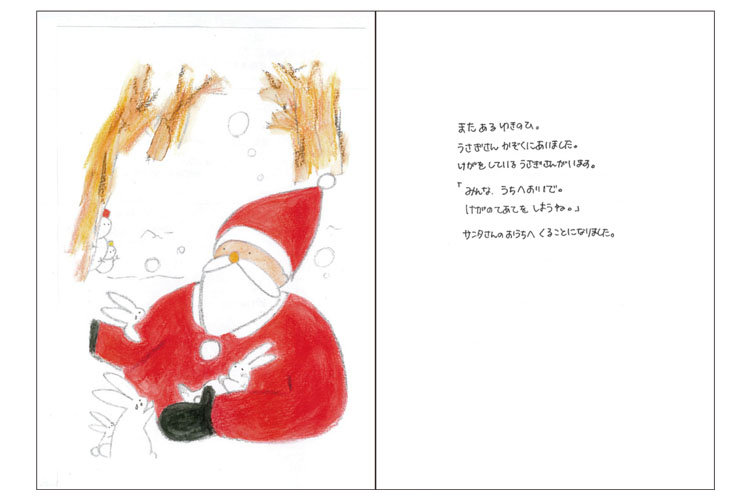 またあるゆきのひ。
うさぎさん かぞくにあいました。
けがをしている うさぎさんがいます。
「みんな、うちへおいで。
けがのてあてを しようね。」
サンタさんのおうちへ くることになりました。